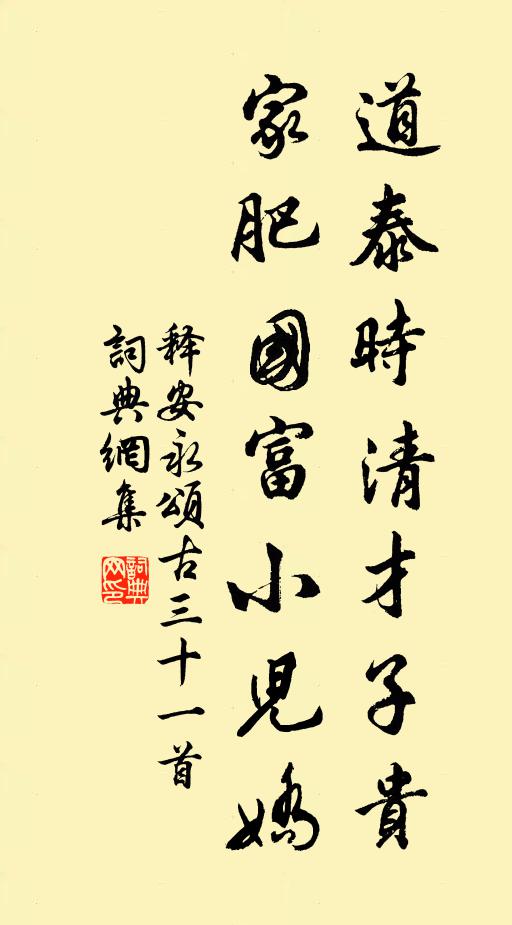 道泰時清才子貴
家肥國富小兒嬌
释安永頌古三十一首
詞典網集
詞典
网印